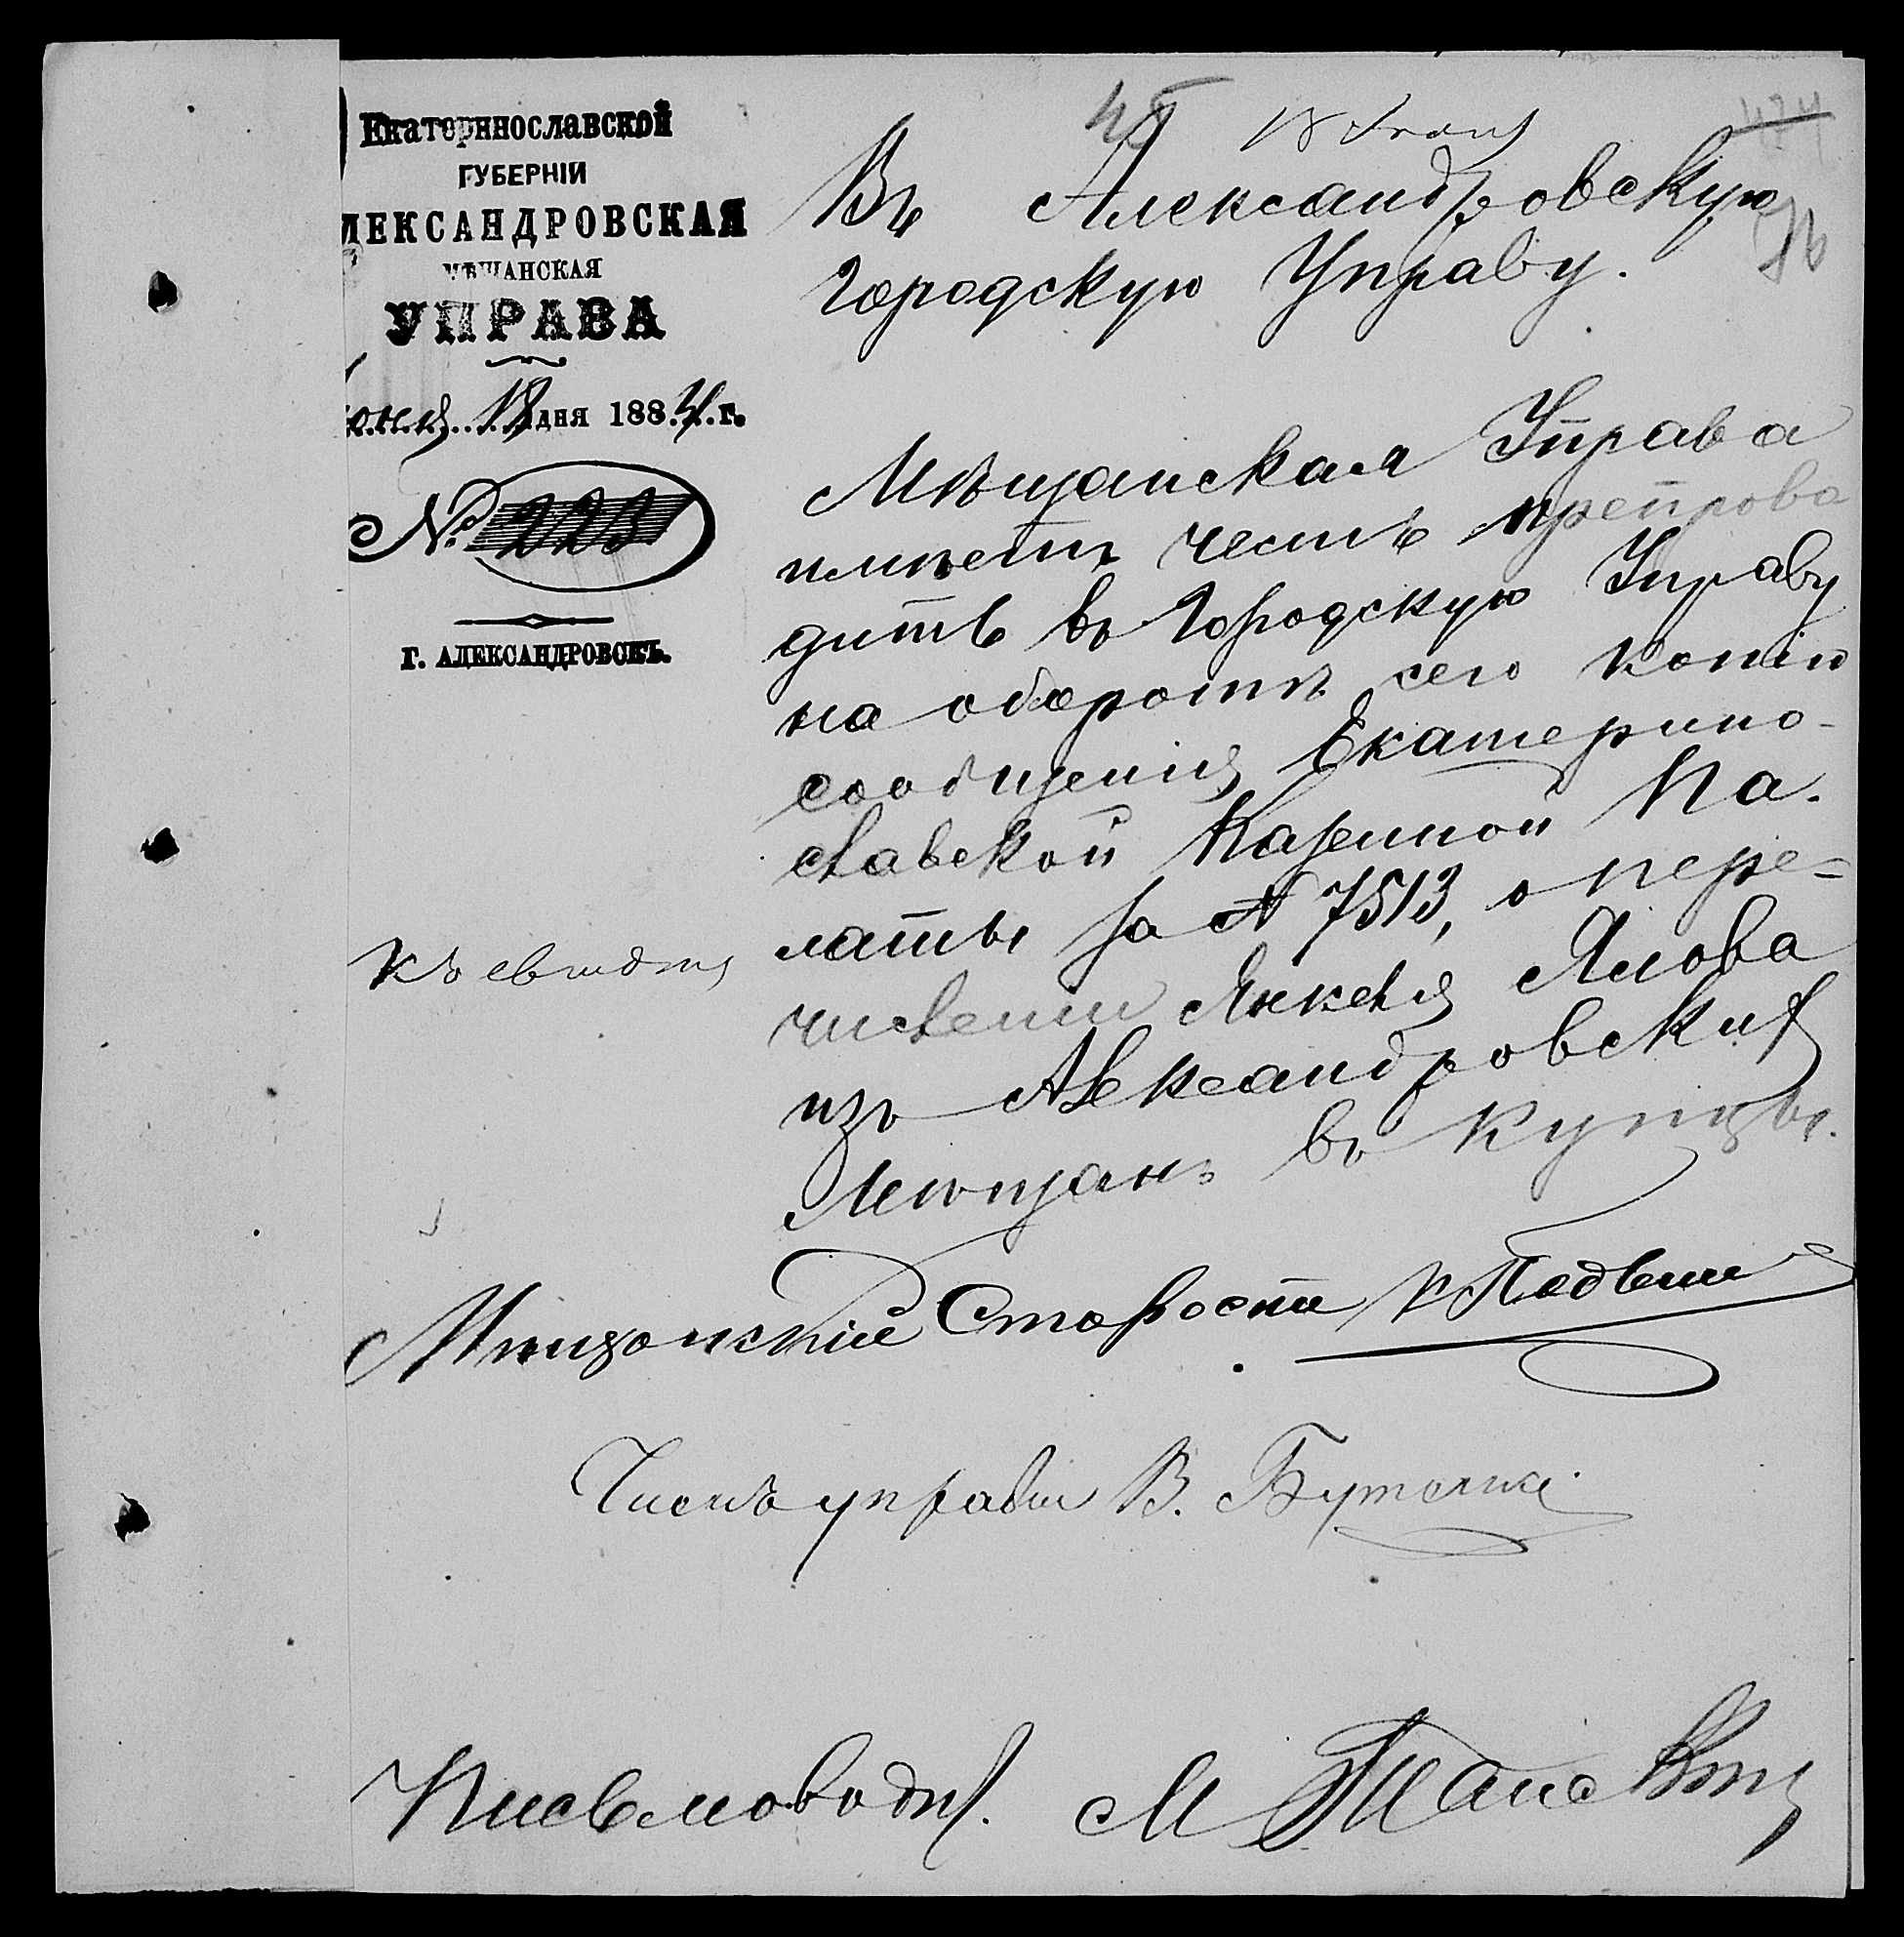 Екатеринославской
ГУБЕРНІИ
ЛЕКСАНДРОВСКАЯ
МѢЩАНСКАЯ
УПРАВА
юня 18 дня 1884 г.
№ 223
Г. АЛЕКСАНДРОВСКЪ.
45
474
Въ Александровскую
Городскую Управу.
Мѣщанская Управа
имѣетъ честь препрово
дить въ Городскую Управу
на оборотѣ сего копію
сообщенія Екатерино-
славской Казенной Па-
латы за № 7513, о пере-
численіи Янкеля Ямова
изъ Александровскихъ
Мѣщанъ въ купцы.
Мѣщанскій Староста
Членъ управы В.
Письмоводит. М